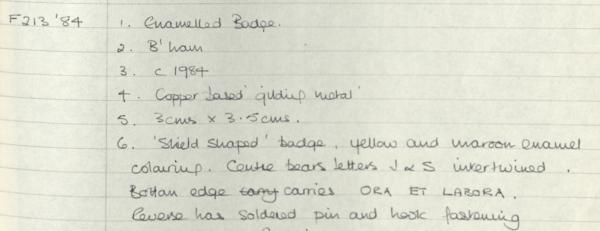 F213 '84 1. Enamelled Badge.
2. B'ham
3. c 1984
4. Copper based 'gilding metal'
5. 3cms x 3.5cms.
6. 'Shield shaped' badge, yellow and maroon enamel
colouring. Centre bears letters J & S intertwined.
Bottom edge carry carries ORA ET LABORA.
Reverse has soldered pin and hook fastening